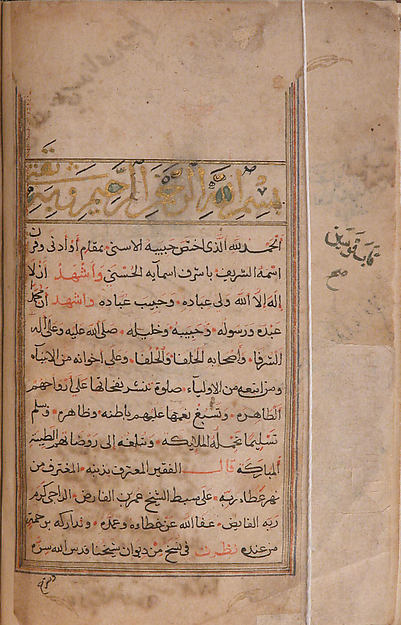 بسم الله الرحمن الرحيم وبه ثقتي
الحمد لله الذي اختص حبيبه الاسنى بمقام او ادنى وقرن
اسمه الشريف باشرف اسمايه الحسنى واشهد ان لا
إله إلا الله ولى عباده وحبيب عباده واشهد ان محمدا
عبده ورسوله وحبيبه وخليله صلى الله عليه وعلى آله
الشرفا وأصحابه الخلفا وعلى اخوانه من الانبياء
ومن اتبعه من الاولياء صلوة تنشر نفحاتها على أرواحهم
الطاهره وتسبغ نعمها عليهم باطنه وظاهره وسلم
تسليما الملايكه وتبلغه إلى روضاتهم الطيبة
المباركة قال الفقير المعترف بذنبه المغترف من
نهر عطاء ربه على سبط الشيخ عمر بن الفارض الراجى كرم
ربه الفايض عفا الله عن خطاه وعمده وتداركه برحمة
من عنده نظرت في نسخ من ديوان شيخنا قدس الله سره
قاب قوسين
صح